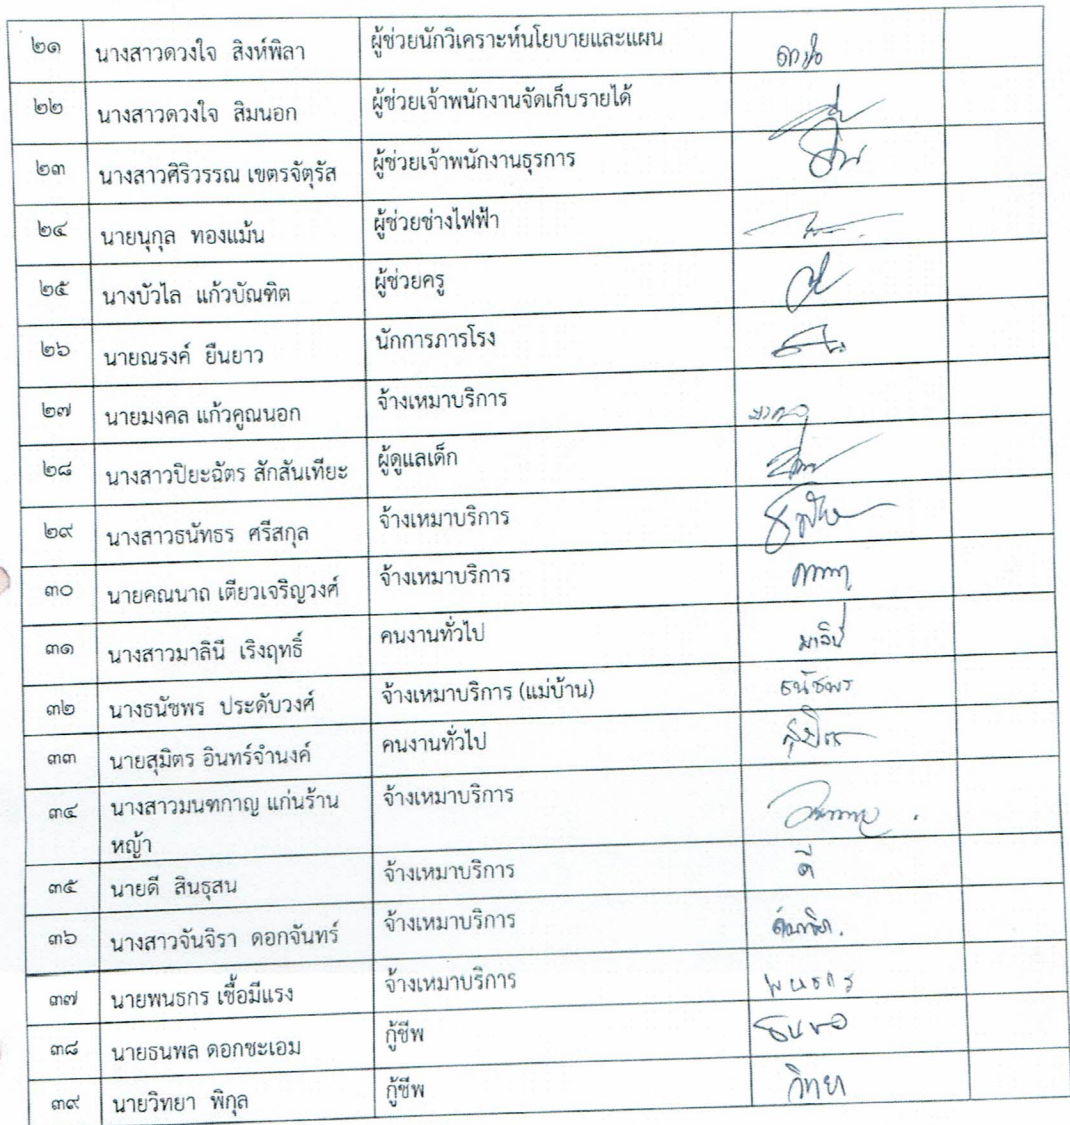 ๒๑ นางสาวดวงใจ สิงห์พิลา ผู้ช่วยนักวิเคราะห์นโยบายและแผน
๒๒ นางสาวดวงใจ สิมนอก ผู้ช่วยเจ้าพนักงานจัดเก็บรายได้
๒๓ นางสาวศิริวรรณ เขตรจัตุรัส ผู้ช่วยเจ้าพนักงานธุรการ
๒๔ นายนุกุล ทองแม้น ผู้ช่วยช่างไฟฟ้า
๒๕ นางบัวไล แก้วบัณฑิต ผู้ช่วยครู
๒๖ นายณรงค์ ยืนยาว นักการภารโรง
๒๗ นายมงคล แก้วคูณนอก จ้างเหมาบริการ
๒๘ นางสาวปิยะฉัตร สักสันเทียะ ผู้ดูแลเด็ก
๒๙ นางสาวธนัทธร ศรีสกุล จ้างเหมาบริการ
๓๐ นายคณนาถ เตียวเจริญวงศ์ จ้างเหมาบริการ
๓๑ นางสาวมาลินี เริงฤทธิ์ คนงานทั่วไป มาลินี
๓๒ นางธนัชพร ประดับวงศ์ จ้างเหมาบริการ (แม่บ้าน) ธนัชพร
๓๓ นายสุมิตร อินทร์จำนงค์ คนงานทั่วไป สุมิตร
๓๔ นางสาวมนฑกาญ แก่นร้าน จ้างเหมาบริการ
หญ้า
๓๕ นายดี สินธุสน จ้างเหมาบริการ ดี
๓๖ นางสาวจันจิรา ดอกจันทร์ จ้างเหมาบริการ
๓๗ นายพนธกร เชื้อมีแรง จ้างเหมาบริการ พนธกร
๓๘ นายธนพล ดอกชะเอม กู้ชีพ
๓๙ นายวิทยา พิกุล กู้ชีพ วิทยา